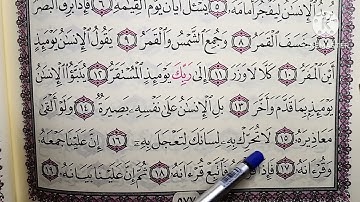 ٱلْإِنسَٰنُ لِيَفْجُرَ أَمَامَهُۥ ٥ يَسْـَٔلُ أَيَّانَ يَوْمُ ٱلْقِيَٰمَةِ ٦ فَإِذَا بَرِقَ ٱلْبَصَرُ
٧ وَخَسَفَ ٱلْقَمَرُ ٨ وَجُمِعَ ٱلشَّمْسُ وَٱلْقَمَرُ ٩ يَقُولُ ٱلْإِنسَٰنُ يَوْمَئِذٍ
أَيْنَ ٱلْمَفَرُّ ١٠ كَلَّا لَا وَزَرَ ١١ إِلَىٰ رَبِّكَ يَوْمَئِذٍ ٱلْمُسْتَقَرُّ ١٢ يُنَبَّؤُا۟ ٱلْإِنسَٰنُ
يَوْمَئِذٍۭ بِمَا قَدَّمَ وَأَخَّرَ ١٣ بَلِ ٱلْإِنسَٰنُ عَلَىٰ نَفْسِهِۦ بَصِيرَةٌ ١٤ وَلَوْ أَلْقَىٰ
مَعَاذِيرَهُۥ ١٥ لَا تُحَرِّكْ بِهِۦ لِسَانَكَ لِتَعْجَلَ بِهِۦٓ ١٦ إِنَّ عَلَيْنَا جَمْعَهُۥ
وَقُرْءَانَهُۥ ١٧ فَإِذَا قَرَأْنَٰهُ فَٱتَّبِعْ قُرْءَانَهُۥ ١٨ ثُمَّ إِنَّ عَلَيْنَا بَيَانَهُۥ ١٩
٥٧٧